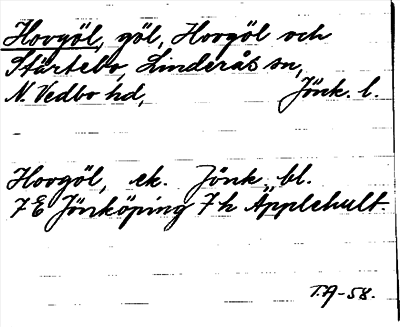 Hovgöl, göl, Hovgöl och
Stärtebo, Linderås sn,
N. Vedbo hd, Jönk. l.
Hovgöl, ek. Jönk. bl.
7E Jönköping 7h Äpplehult.
T.A-58.